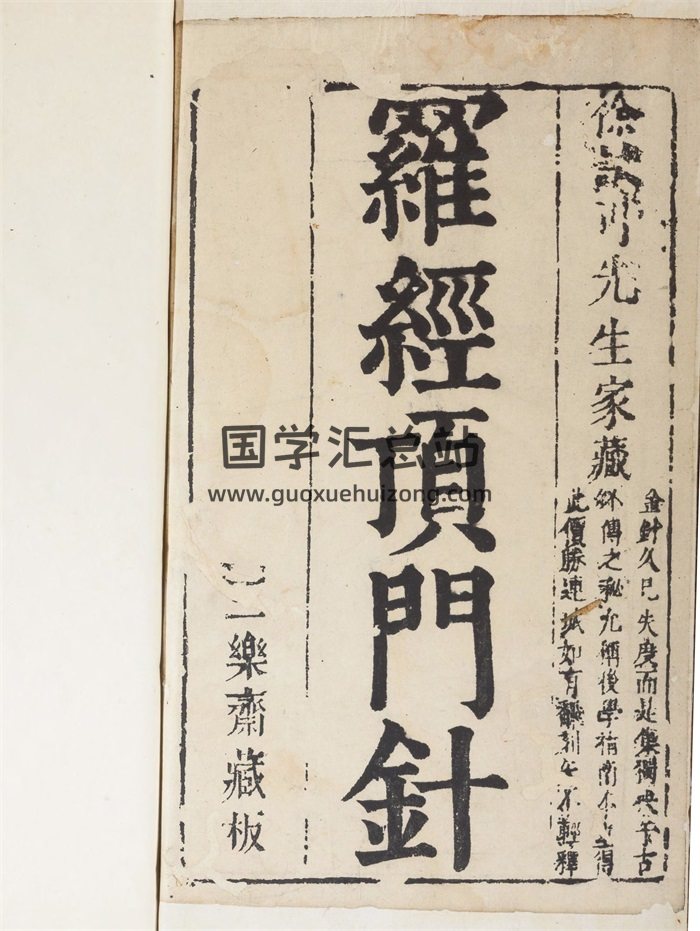 徐 先生家藏
金針久已失度而是集獨 千古
傳之秘尤稱後學指南 得
此價勝連城如有翻刻 不輕釋
羅經頂門針
一樂齋藏板
国学汇总站
www.guoxuehuizong.com